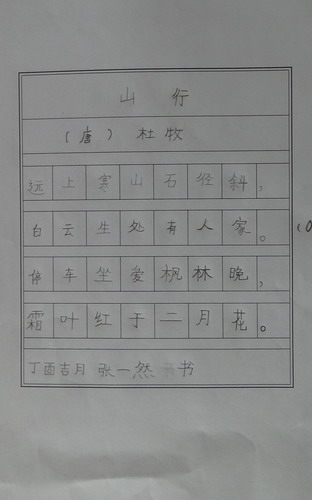 山行
(唐) 杜牧
远上寒山石径斜，
白云生处有人家。
停车坐爱枫林晚，
霜叶红于二月花。
丁酉吉月 张一然 书